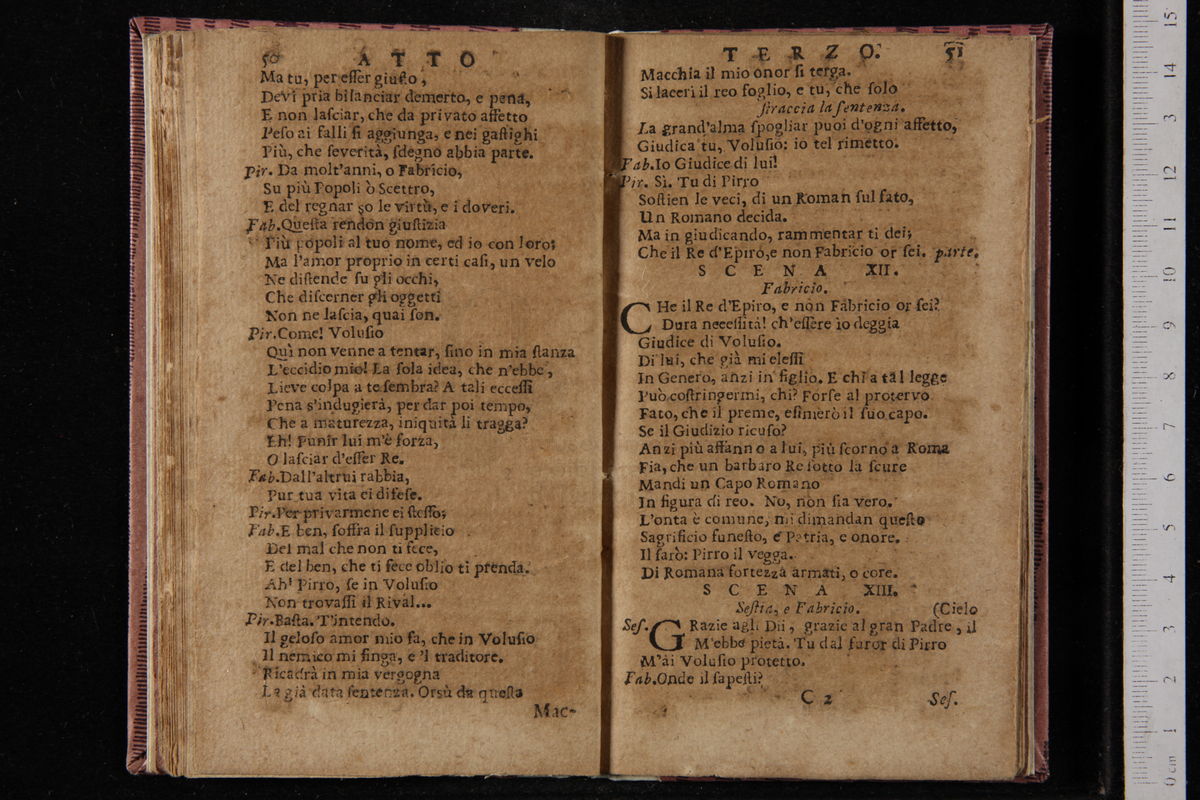 50 ATTO
Ma tu, per eſſer giuſto,
Devi pria bilanciar demerto, e pena,
E non laſciar, che da privato affetto
Peſo ai falli ſi aggiunga, e nei gaſtighi
Più, che ſeverità, ſdegno abbia parte.
Pir. Da molt'anni, o Fabricio,
Su più Popoli ò Scettro,
E del regnar ſo le virtù, e i doveri.
Fab.Queſta rendon giuſtizia
Più popoli al tuo nome, ed io con loro;
Ma l'amor proprio in certi caſi, un velo
Ne diſtende ſu gli occhi,
Che diſcerner gli oggetti
Non ne laſcia, quai ſon.
Pir.Come! Voluſio
Quì non venne a tentar, ſino in mia ſtanza
L'eccidio mio! La ſola idea, che n'ebbe,
Lieve colpa a te ſembra? A tali ecceſſi
Pena s'indugierà, per dar poi tempo,
Che a maturezza, iniquità li tragga?
Eh! Punir lui m'è forza,
O laſciar d'eſſer Re.
Fab.Dall'altrui rabbia,
Pur tua vita ei difeſe.
Pir.Per privarmene ei ſteſſo;
Fab.E ben, ſoffra il ſupplicio
Del mal che non ti fece,
E del ben, che ti fece oblio ti prenda.
Ah! Pirro, ſe in Voluſio
Non trovaſſi il Rival...
Pir.Baſta. T'intendo.
Il geloſo amor mio fa, che in Voluſio
Il nemico mi finga, e 'l traditore.
Ricadrà in mia vergogna
La già data ſentenza. Orsù da queſta
Mac-
TERZO. 51
Macchia il mio onor ſi terga.
Si laceri il reo foglio, e tu, che ſolo
ſtraccia la ſentenza.
La grand'alma ſpogliar puoi d'ogni affetto,
Giudica tu, Voluſio: io tel rimetto.
Fab.Io Giudice di lui!
Pir. Sì. Tu di Pirro
Soſtien le veci, di un Roman ſul fato,
Un Romano decida.
Ma in giudicando, rammentar ti dei,
Che il Re d'Epiro,e non Fabricio or ſei. parte.
SCENA XII.
Fabricio.
CHe il Re d'Epiro, e non Fabricio or ſei?
Dura neceſſità! ch'eſſere io deggia
Giudice di Voluſio.
Di lui, che già mi eleſſi
In Genero, anzi in figlio. E chi a tal legge
Può coſtringermi, chi? Forſe al protervo
Fato, che il preme, eſimerò il ſuo capo.
Se il Giudizio ricuſo?
Anzi più affanno a lui, più ſcorno a Roma
Fia, che un barbaro Re ſotto la ſcure
Mandi un Capo Romano
In figura di reo. No, non ſia vero.
L'onta è comune, mi dimandan queſto
Sagrificio funeſto, e Patria, e onore.
Il farò: Pirro il vegga.
Di Romana fortezza armati, o core.
SCENA XIII.
Seſtia, e Fabricio. (Cielo
Seſ. GRazie agli Dii, grazie al gran Padre, il
M'ebbe pietà. Tu dal furor di Pirro
M'ài Voluſio protetto.
Fab.Onde il ſapeſti?
C 2 Seſ.
0 cm 1 2 3 4 5 6 7 8 9 10 11 12 3 14 15